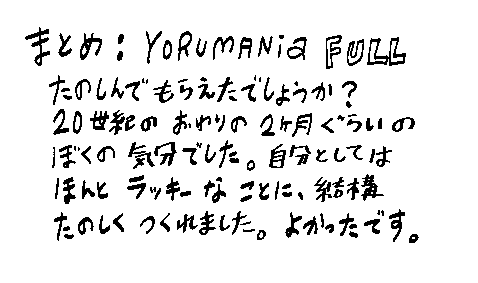 まとめ：YORUMANIa FULL
たのしんでもらえたでしょうか？
20世紀のおわりの2ヶ月ぐらいの
ぼくの気分でした。自分としては
ほんとラッキーなことに、結構
たのしくつくれました。よかったです。